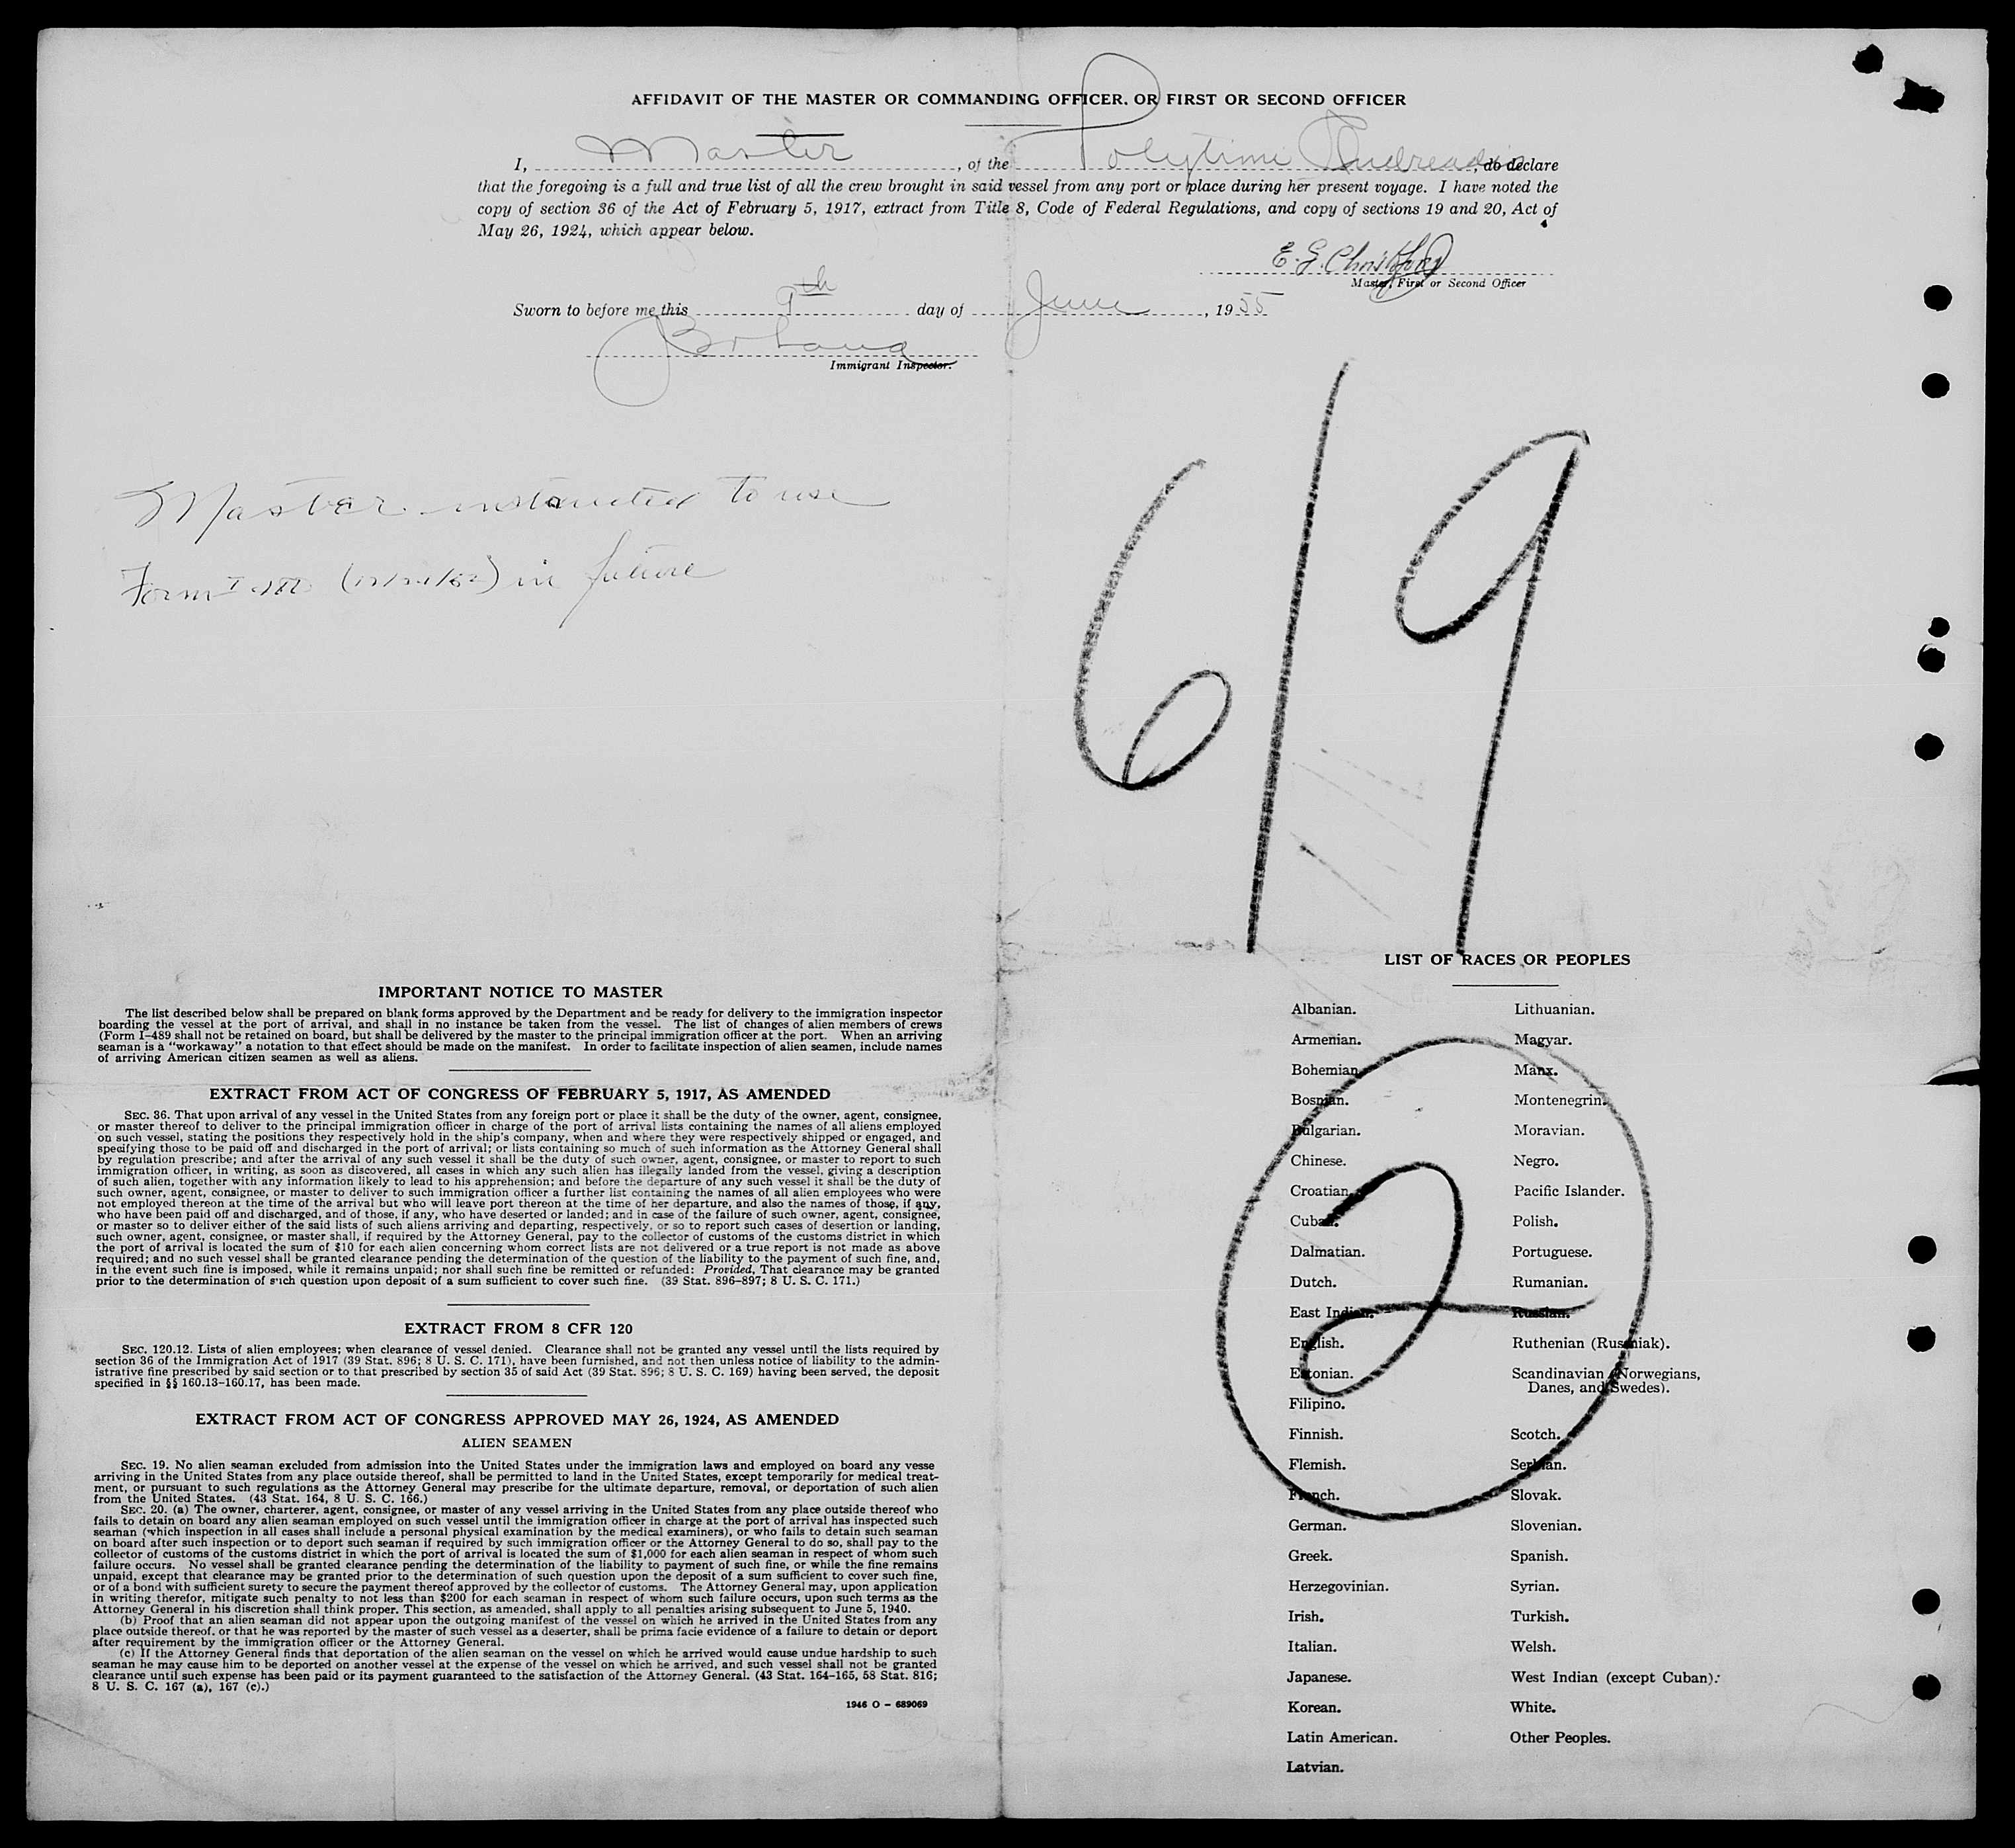 AFFIDAVIT OF THE MASTER OR COMMANDING OFFICER, OR FIRST OR SECOND OFFICER
I, Master, of the Polytimi Andreadis, do declare
that the foregoing is a full and true list of all the crew brought in said vessel from any port or place during her present voyage. I have noted the
copy of section 36 of the Act of February 5, 1917, extract from Title 8, Code of Federal Regulations, and copy of sections 19 and 20, Act of
May 26, 1924, which appear below.
E. G.
Master, First or Second Officer
Sworn to before me this 9th day of June, 1955
Immigrant Inspector.
Master instructed to use
Form I (12/24/52) in future
6/9
IMPORTANT NOTICE TO MASTER
The list described below shall be prepared on blank forms approved by the Department and be ready for delivery to the immigration inspector
boarding the vessel at the port of arrival, and shall in no instance be taken from the vessel. The list of changes of alien members of crews
(Form I-489 shall not be retained on board, but shall be delivered by the master to the principal immigration officer at the port. When an arriving
seaman is a "workaway" a notation to that effect should be made on the manifest. In order to facilitate inspection of alien seamen, include names
of arriving American citizen seamen as well as aliens.
EXTRACT FROM ACT OF CONGRESS OF FEBRUARY 5, 1917, AS AMENDED
SEC. 36. That upon arrival of any vessel in the United States from any foreign port or place it shall be the duty of the owner, agent, consignee,
or master thereof to deliver to the principal immigration officer in charge of the port of arrival lists containing the names of all aliens employed
on such vessel, stating the positions they respectively hold in the ship's company, when and where they were respectively shipped or engaged, and
specifying those to be paid off and discharged in the port of arrival; or lists containing so much of such information as the Attorney General shall
by regulation prescribe; and after the arrival of any such vessel it shall be the duty of such owner, agent, consignee, or master to report to such
immigration officer, in writing, as soon as discovered, all cases in which any such alien has illegally landed from the vessel, giving a description
of such alien, together with any information likely to lead to his apprehension; and before the departure of any such vessel it shall be the duty of
such owner, agent, consignee, or master to deliver to such immigration officer a further list containing the names of all alien employees who were
not employed thereon at the time of the arrival but who will leave port thereon at the time of her departure, and also the names of those, if any,
who have been paid off and discharged, and of those, if any, who have deserted or landed; and in case of the failure of such owner, agent, consignee,
or master so to deliver either of the said lists of such aliens arriving and departing, respectively, or so to report such cases of desertion or landing,
such owner, agent, consignee, or master shall, if required by the Attorney General, pay to the collector of customs of the customs district in which
the port of arrival is located the sum of $10 for each alien concerning whom correct lists are not delivered or a true report is not made as above
required; and no such vessel shall be granted clearance pending the determination of the question of the liability to the payment of such fine, and,
in the event such fine is imposed, while it remains unpaid; nor shall such fine be remitted or refunded: Provided, That clearance may be granted
prior to the determination of such question upon deposit of a sum sufficient to cover such fine. (39 Stat. 896-897; 8 U. S. C. 171.)
EXTRACT FROM 8 CFR 120
SEC. 120.12. Lists of alien employees; when clearance of vessel denied. Clearance shall not be granted any vessel until the lists required by
section 36 of the Immigration Act of 1917 (39 Stat. 896; 8 U. S. C. 171), have been furnished, and not then unless notice of liability to the admin-
istrative fine prescribed by said section or to that prescribed by section 35 of said Act (39 Stat. 896; 8 U. S. C. 169) having been served, the deposit
specified in §§ 160.13-160.17, has been made.
EXTRACT FROM ACT OF CONGRESS APPROVED MAY 26, 1924, AS AMENDED
ALIEN SEAMEN
SEC. 19. No alien seaman excluded from admission into the United States under the immigration laws and employed on board any vesse
arriving in the United States from any place outside thereof, shall be permitted to land in the United States, except temporarily for medical treat-
ment, or pursuant to such regulations as the Attorney General may prescribe for the ultimate departure, removal, or deportation of such alien
from the United States. (43 Stat. 164, 8 U. S. C. 166.)
SEC. 20. (a) The owner, charterer, agent, consignee, or master of any vessel arriving in the United States from any place outside thereof who
fails to detain on board any alien seaman employed on such vessel until the immigration officer in charge at the port of arrival has inspected such
seaman (which inspection in all cases shall include a personal physical examination by the medical examiners), or who fails to detain such seaman
on board after such inspection or to deport such seaman if required by such immigration officer or the Attorney General to do so, shall pay to the
collector of customs of the customs district in which the port of arrival is located the sum of $1,000 for each alien seaman in respect of whom such
failure occurs. No vessel shall be granted clearance pending the determination of the liability to payment of such fine, or while the fine remains
unpaid, except that clearance may be granted prior to the determination of such question upon the deposit of a sum sufficient to cover such fine,
or of a bond with sufficient surety to secure the payment thereof approved by the collector of customs. The Attorney General may, upon application
in writing therefor, mitigate such penalty to not less than $200 for each seaman in respect of whom such failure occurs, upon such terms as the
Attorney General in his discretion shall think proper. This section, as amended, shall apply to all penalties arising subsequent to June 5, 1940.
(b) Proof that an alien seaman did not appear upon the outgoing manifest of the vessel on which he arrived in the United States from any
place outside thereof, or that he was reported by the master of such vessel as a deserter, shall be prima facie evidence of a failure to detain or deport
after requirement by the immigration officer or the Attorney General.
(c) If the Attorney General finds that deportation of the alien seaman on the vessel on which he arrived would cause undue hardship to such
seaman he may cause him to be deported on another vessel at the expense of the vessel on which he arrived, and such vessel shall not be granted
clearance until such expense has been paid or its payment guaranteed to the satisfaction of the Attorney General. (43 Stat. 164-165, 58 Stat. 816;
8 U. S. C. 167 (a), 167 (c).)
1946 O - 689069
LIST OF RACES OR PEOPLES
Albanian.
Armenian.
Bohemian.
Bosnian.
Bulgarian.
Chinese.
Croatian.
Cuban.
Dalmatian.
Dutch.
East Indian.
English.
Estonian.
Filipino.
Finnish.
Flemish.
French.
German.
Greek.
Herzegovinian.
Irish.
Italian.
Japanese.
Korean.
Latin American.
Latvian.
Lithuanian.
Magyar.
Manx.
Montenegrin.
Moravian.
Negro.
Pacific Islander.
Polish.
Portuguese.
Rumanian.
Russian.
Ruthenian (Russniak).
Scandinavian (Norwegians,
Danes, and Swedes).
Scotch.
Serbian.
Slovak.
Slovenian.
Spanish.
Syrian.
Turkish.
Welsh.
West Indian (except Cuban).
White.
Other Peoples.
2